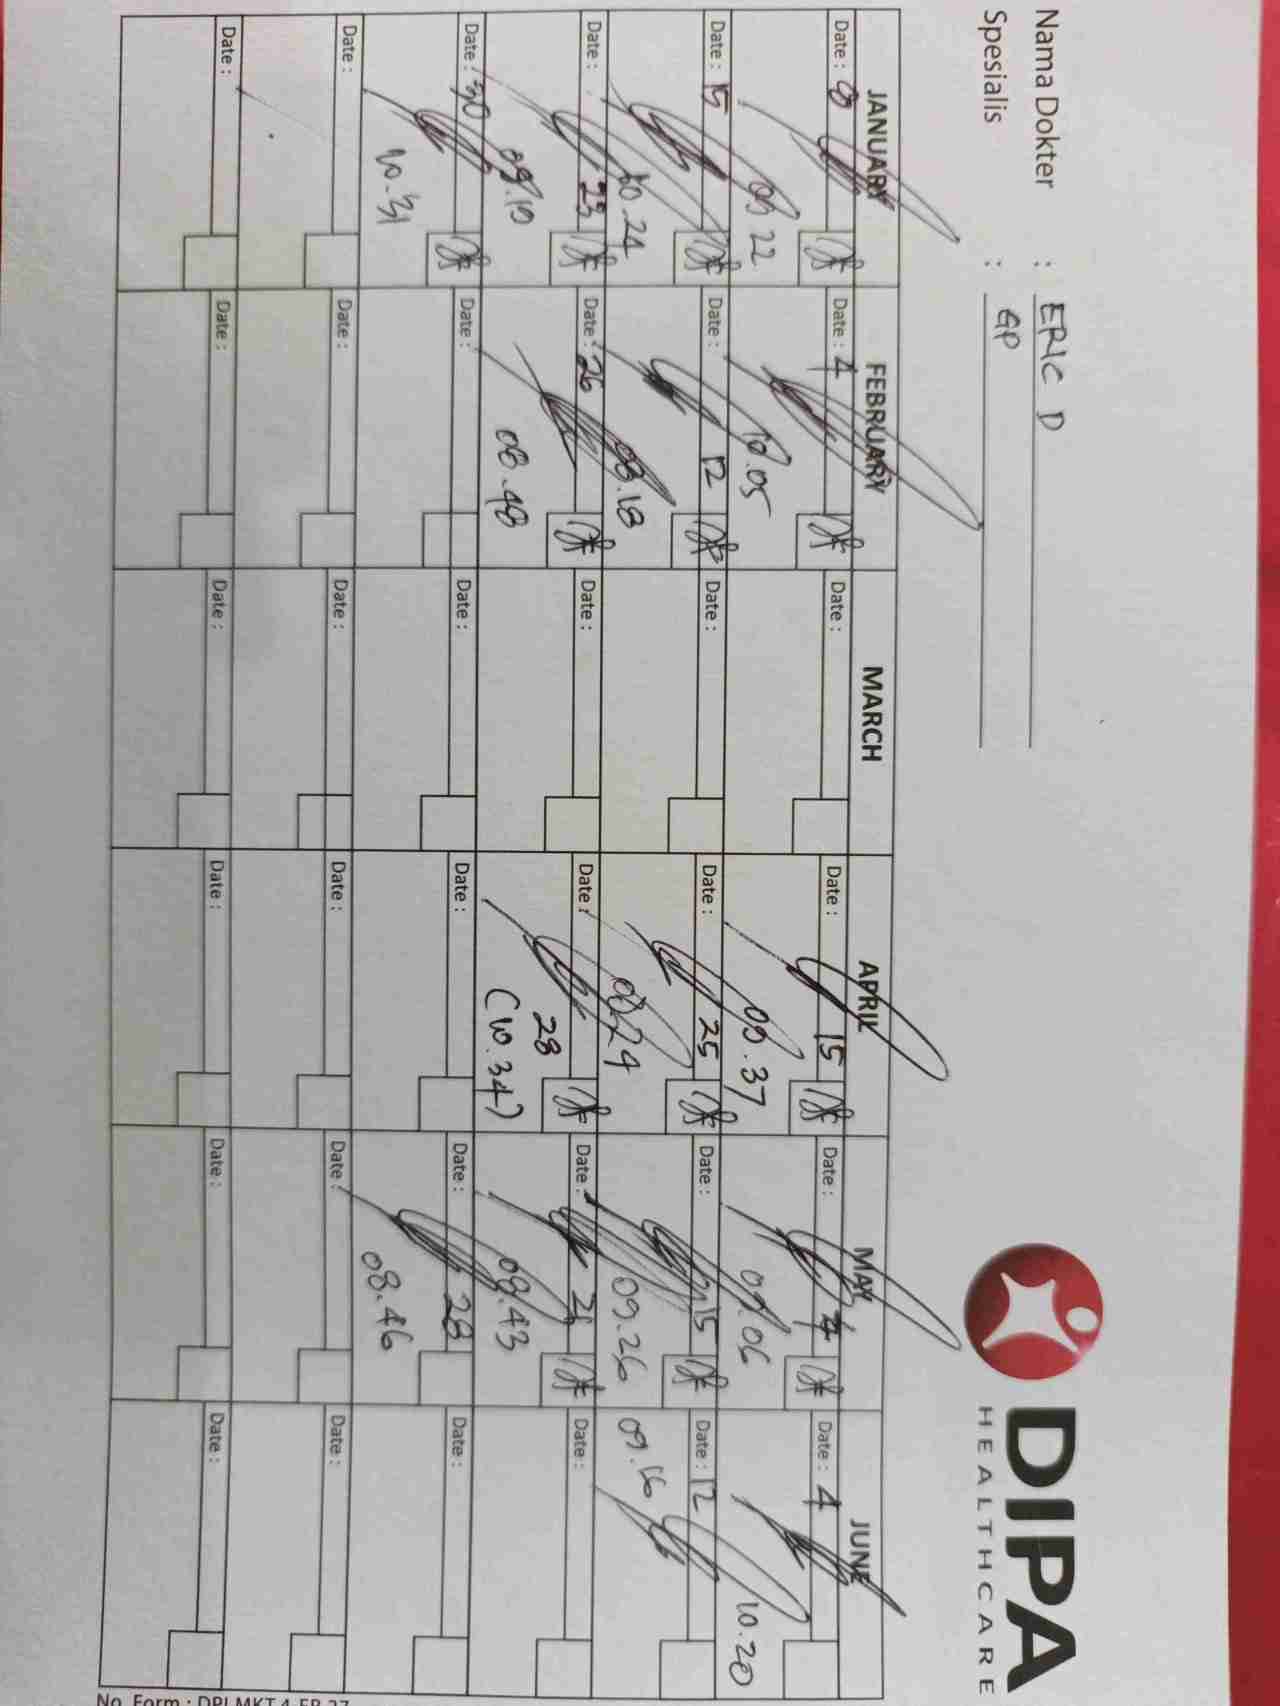 Nama Dokter : ERIC D
Spesialis : GP
DIPA
HEALTHCARE
JANUARY FEBRUARY MARCH APRIL MAY JUNE
Date : 8 Date : 4 Date : Date : 15 Date : 4 Date : 4
09.22 10.05 09.37 09.06 10.20
Date : 15 Date : 12 Date : Date : 25 Date : 15 Date : 12
10.24 08.18 08.24 09.26 09.16
Date : 23 Date : 26 Date : Date : 28 Date : 21 Date :
09.19 08.48 (10.34) 08.43
Date : 30 Date : Date : Date : Date : 28 Date :
10.31 08.46
Date : Date : Date : Date : Date : Date :
Date : Date : Date : Date : Date : Date :